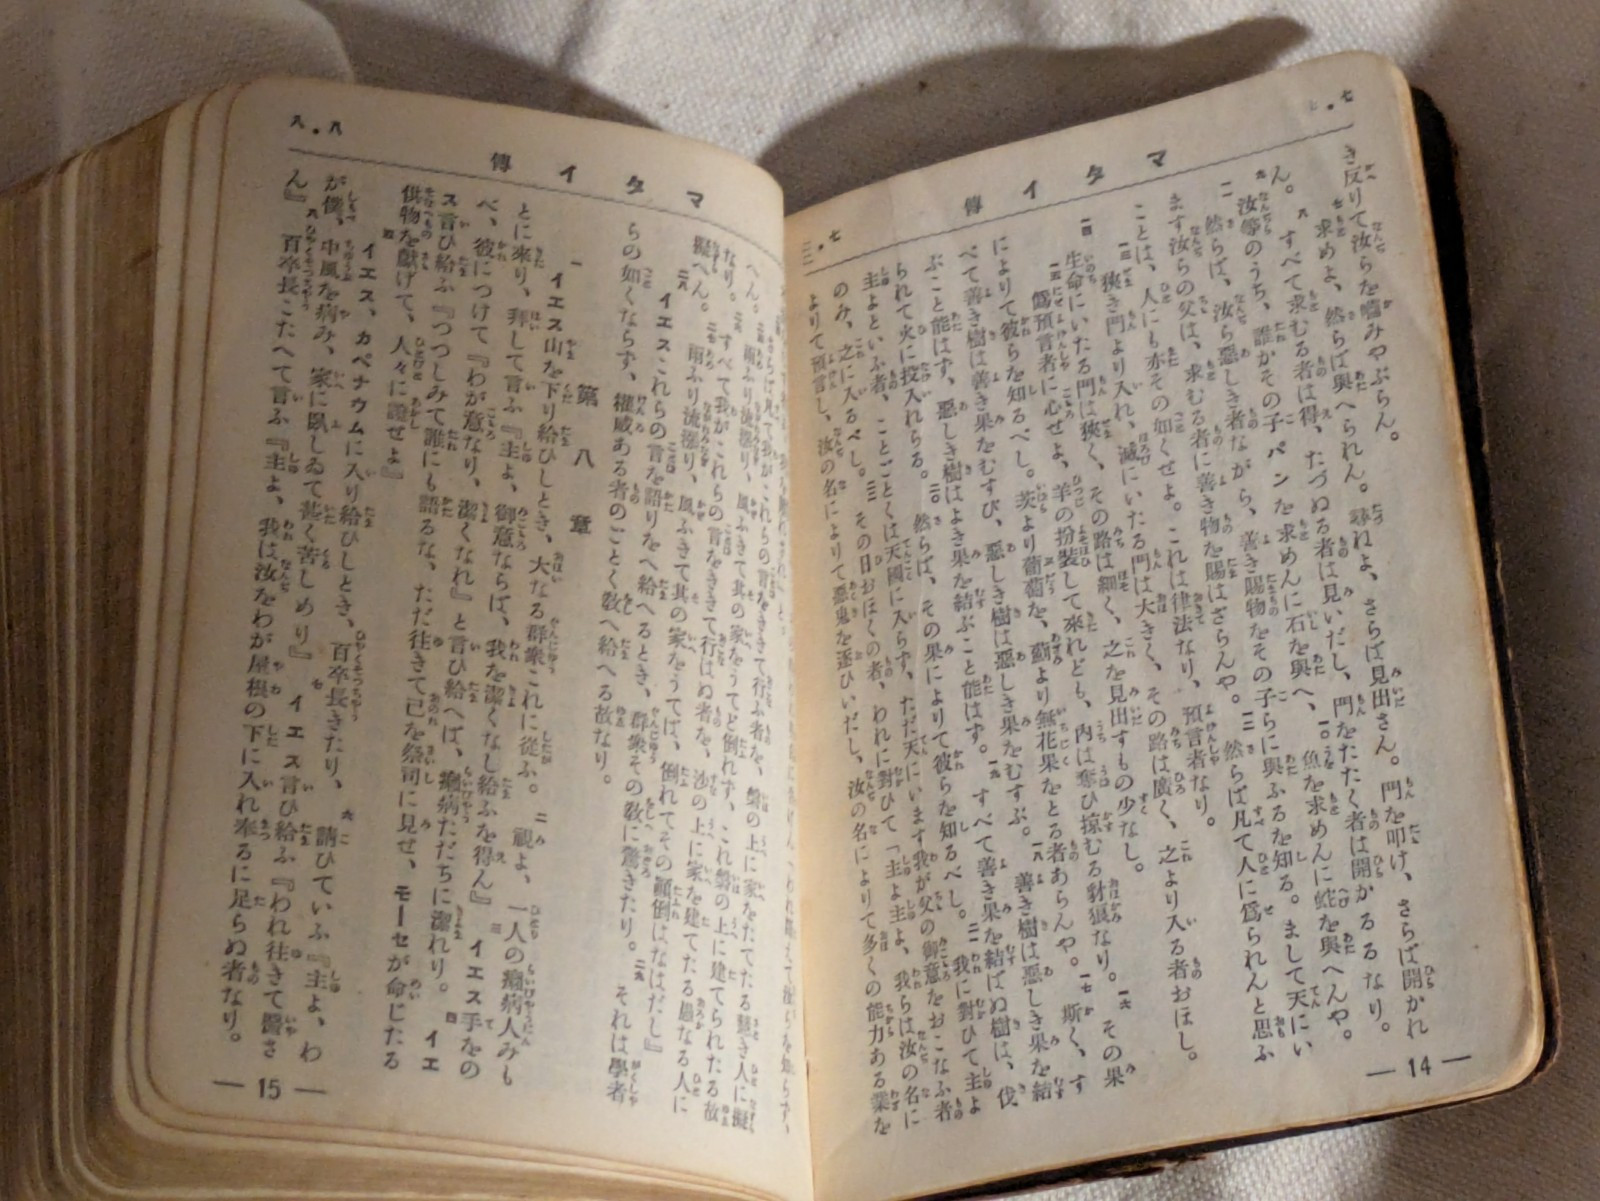 七・七
マタイ傳
き反りて汝らを嚙みやぶらん。
七 求めよ、然らば與へられん。尋ねよ、さらば見出さん。門を叩け、さらば開かれ
ん。八 すべて求むる者は得、たづぬる者は見いだし、門をたたく者は開かるるなり。
九 汝等のうち、誰かその子パンを求めんに石を與へ、一〇 魚を求めんに蛇を與へんや。
一一 然らば、汝ら惡しき者ながら、善き賜物をその子らに與ふるを知る。まして天にい
ます汝らの父は、求むる者に善き物を賜はざらんや。一二 然らば凡て人に爲られんと思ふ
ことは、人にも亦その如くせよ。これは律法なり、預言者なり。
一三 狹き門より入れ、滅にいたる門は大きく、その路は廣く、之より入る者おほし。
一四 生命にいたる門は狹く、その路は細く、之を見出すもの少なし。
一五 僞預言者に心せよ、羊の扮裝して來れども、内は奪ひ掠むる豺狼なり。一六 その果
によりて彼らを知るべし。茨より葡萄を、薊より無花果をとる者あらんや。一七 斯く、す
べて善き樹は善き果をむすび、惡しき樹は惡しき果をむすぶ。一八 善き樹は惡しき果を結
ぶこと能はず、惡しき樹はよき果を結ぶこと能はず。一九 すべて善き果を結ばぬ樹は、伐
られて火に投入れらる。二〇 然らば、その果によりて彼らを知るべし。二一 我に對ひて主よ
主よといふ者、ことごとくは天國に入らず、ただ天にいます我が父の御意をおこなふ者
のみ、之に入るべし。二二 その日おほくの者、われに對ひて「主よ主よ、我らは汝の名に
よりて預言し、汝の名によりて惡鬼を逐ひいだし、汝の名によりて多くの能力ある業を
― 14 ―
八・八
マタイ傳
へん。
我がこれらの言をききて行ふ者を、磐の上に家をたてたる慧き人に擬
へん。二五 雨ふり流漲り、風ふきて其の家をうてど倒れず、これ磐の上に建てられたる故
なり。二六 すべて我がこれらの言をききて行はぬ者を、沙の上に家を建てたる愚なる人に
擬へん。二七 雨ふり流漲り、風ふきて其の家をうてば、倒れてその顚倒はなはだし』
二八 イエスこれらの言を語りをへ給へるとき、群衆その敎に驚きたり。二九 それは學者
らの如くならず、權威ある者のごとく敎へ給へる故なり。
第八章
一 イエス山を下り給ひしとき、大なる群衆これに從ふ。二 視よ、一人の癩病人みも
とに來り、拜して言ふ『主よ、御意ならば、我を潔くなし給ふを得ん』三 イエス手をの
べ、彼につけて『わが意なり、潔くなれ』と言ひ給へば、癩病ただちに潔れり。四 イエ
ス言ひ給ふ『つつしみて誰にも語るな、ただ往きて己を祭司に見せ、モーセが命じたる
供物を獻げて、人々に證せよ』
五 イエス、カペナウムに入り給ひしとき、百卒長きたり、六 請ひていふ『主よ、わ
が僕、中風を病み、家に臥しゐて甚く苦しめり』七 イエス言ひ給ふ『われ往きて醫さ
ん』八 百卒長こたへて言ふ『主よ、我は汝をわが屋根の下に入れ奉るに足らぬ者なり。
― 15 ―